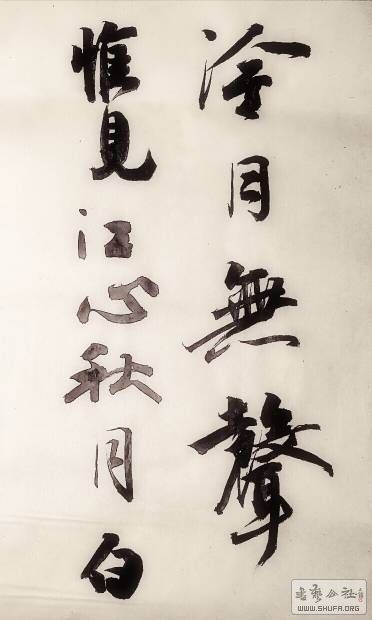 冷月無聲
惟見江心秋月白
書藝公社
WWW.SHUFA.ORG